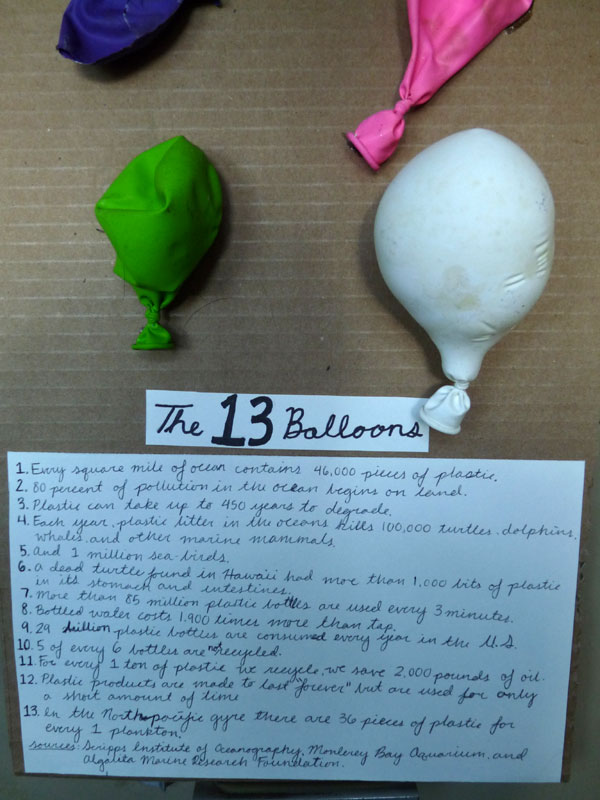 The 13 Balloons
1. Every square mile of ocean contains 46,000 pieces of plastic.
2. 80 percent of pollution in the ocean begins on land.
3. Plastic can take up to 450 years to degrade.
4. Each year, plastic litter in the oceans kills 100,000 turtles, dolphins,
whales, and other marine mammals.
5. And 1 million sea-birds.
6. A dead turtle found in Hawaii had more than 1,000 bits of plastic
in its stomach and intestines.
7. More than 85 million plastic bottles are used every 3 minutes.
8. Bottled water costs 1,900 times more than tap.
9. 29 billion plastic bottles are consumed every year in the U.S.
10. 5 of every 6 bottles are not recycled.
11. For every 1 ton of plastic we recycle, we save 2,000 pounds of oil.
12. Plastic products are made to last "forever" but are used for only
a short amount of time
13. In the North pacific gyre there are 36 pieces of plastic for
every 1 plankton.
sources: Scripps Institute of Oceanography, Monterey Bay Aquarium, and
Algalita Marine Research Foundation.